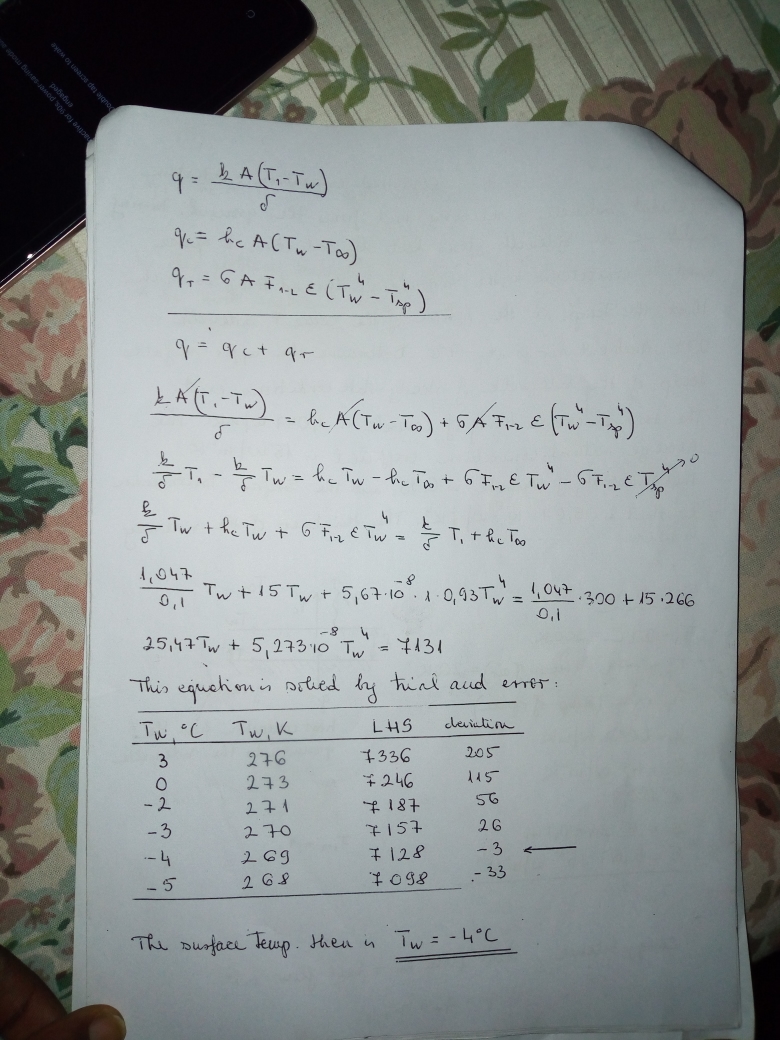 Double tap screen to wake
engaged
q = k A (T₁ - T_w) / δ
q_c = h_c A (T_w - T_∞)
q_r = σ A F₁₋₂ ε (T_w⁴ - T_sp⁴)
q = q_c + q_r
k A (T₁ - T_w) / δ = h_c A (T_w - T_∞) + σ A F₁₋₂ ε (T_w⁴ - T_sp⁴)
k/δ T₁ - k/δ T_w = h_c T_w - h_c T_∞ + σ F₁₋₂ ε T_w⁴ - σ F₁₋₂ ε T_sp⁴ → 0
k/δ T_w + h_c T_w + σ F₁₋₂ ε T_w⁴ = k/δ T₁ + h_c T_∞
1,047/0,1 T_w + 15 T_w + 5,67·10⁻⁸ · 1 · 0,93 T_w⁴ = 1,047/0,1 · 300 + 15 · 266
25,47 T_w + 5,273·10⁻⁸ T_w⁴ = 7131
This equation is solved by trial and error:
T_w, °C T_w, K LHS deviation
3 276 7336 205
0 273 7246 115
-2 271 7187 56
-3 270 7157 26
-4 269 7128 -3 ←
-5 268 7098 -33
The surface temp. then is T_w = -4°C